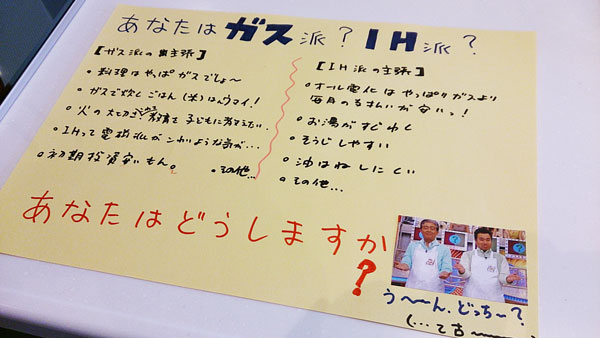 あなたはガス派？IH派？
【ガス派の主張】
・料理はやっぱガスでしょ～
・ガスで炊くごはん(米)はウマイ！
・火の大切さ教育を子どもに教えたい
・IHって電磁波がこわいような気が…
・初期投資安いもん。
・その他…
【IH派の主張】
・オール電化はやっぱりガスより
毎月のるさいが安いっ！
・お湯がすぐわく
・そうじしやすい
・油はねしにくい
・その他…
あなたはどうしますか
？
う～～ん、どっち～？
(…て古